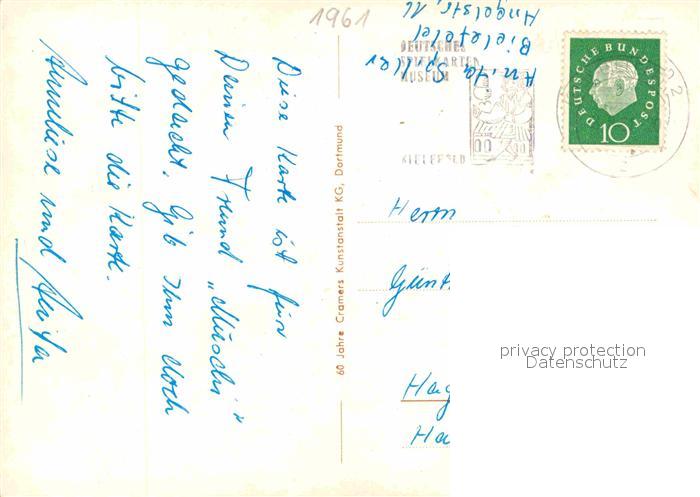 1961
Anita
Bielefeld
Angelstr. 16
DEUTSCHES
SPIELKARTEN
MUSEUM
BIELEFELD
DEUTSCHE BUNDESPOST
10
Diese Karte ist für
Deinen Freund „Muschi"
gedacht. Gib Ihm doch
bitte die Karte.
Anneliese und Anita
60 Jahre Cramers Kunstanstalt KG, Dortmund
Herrn
Günt
Hag
Ha
privacy protection
Datenschutz